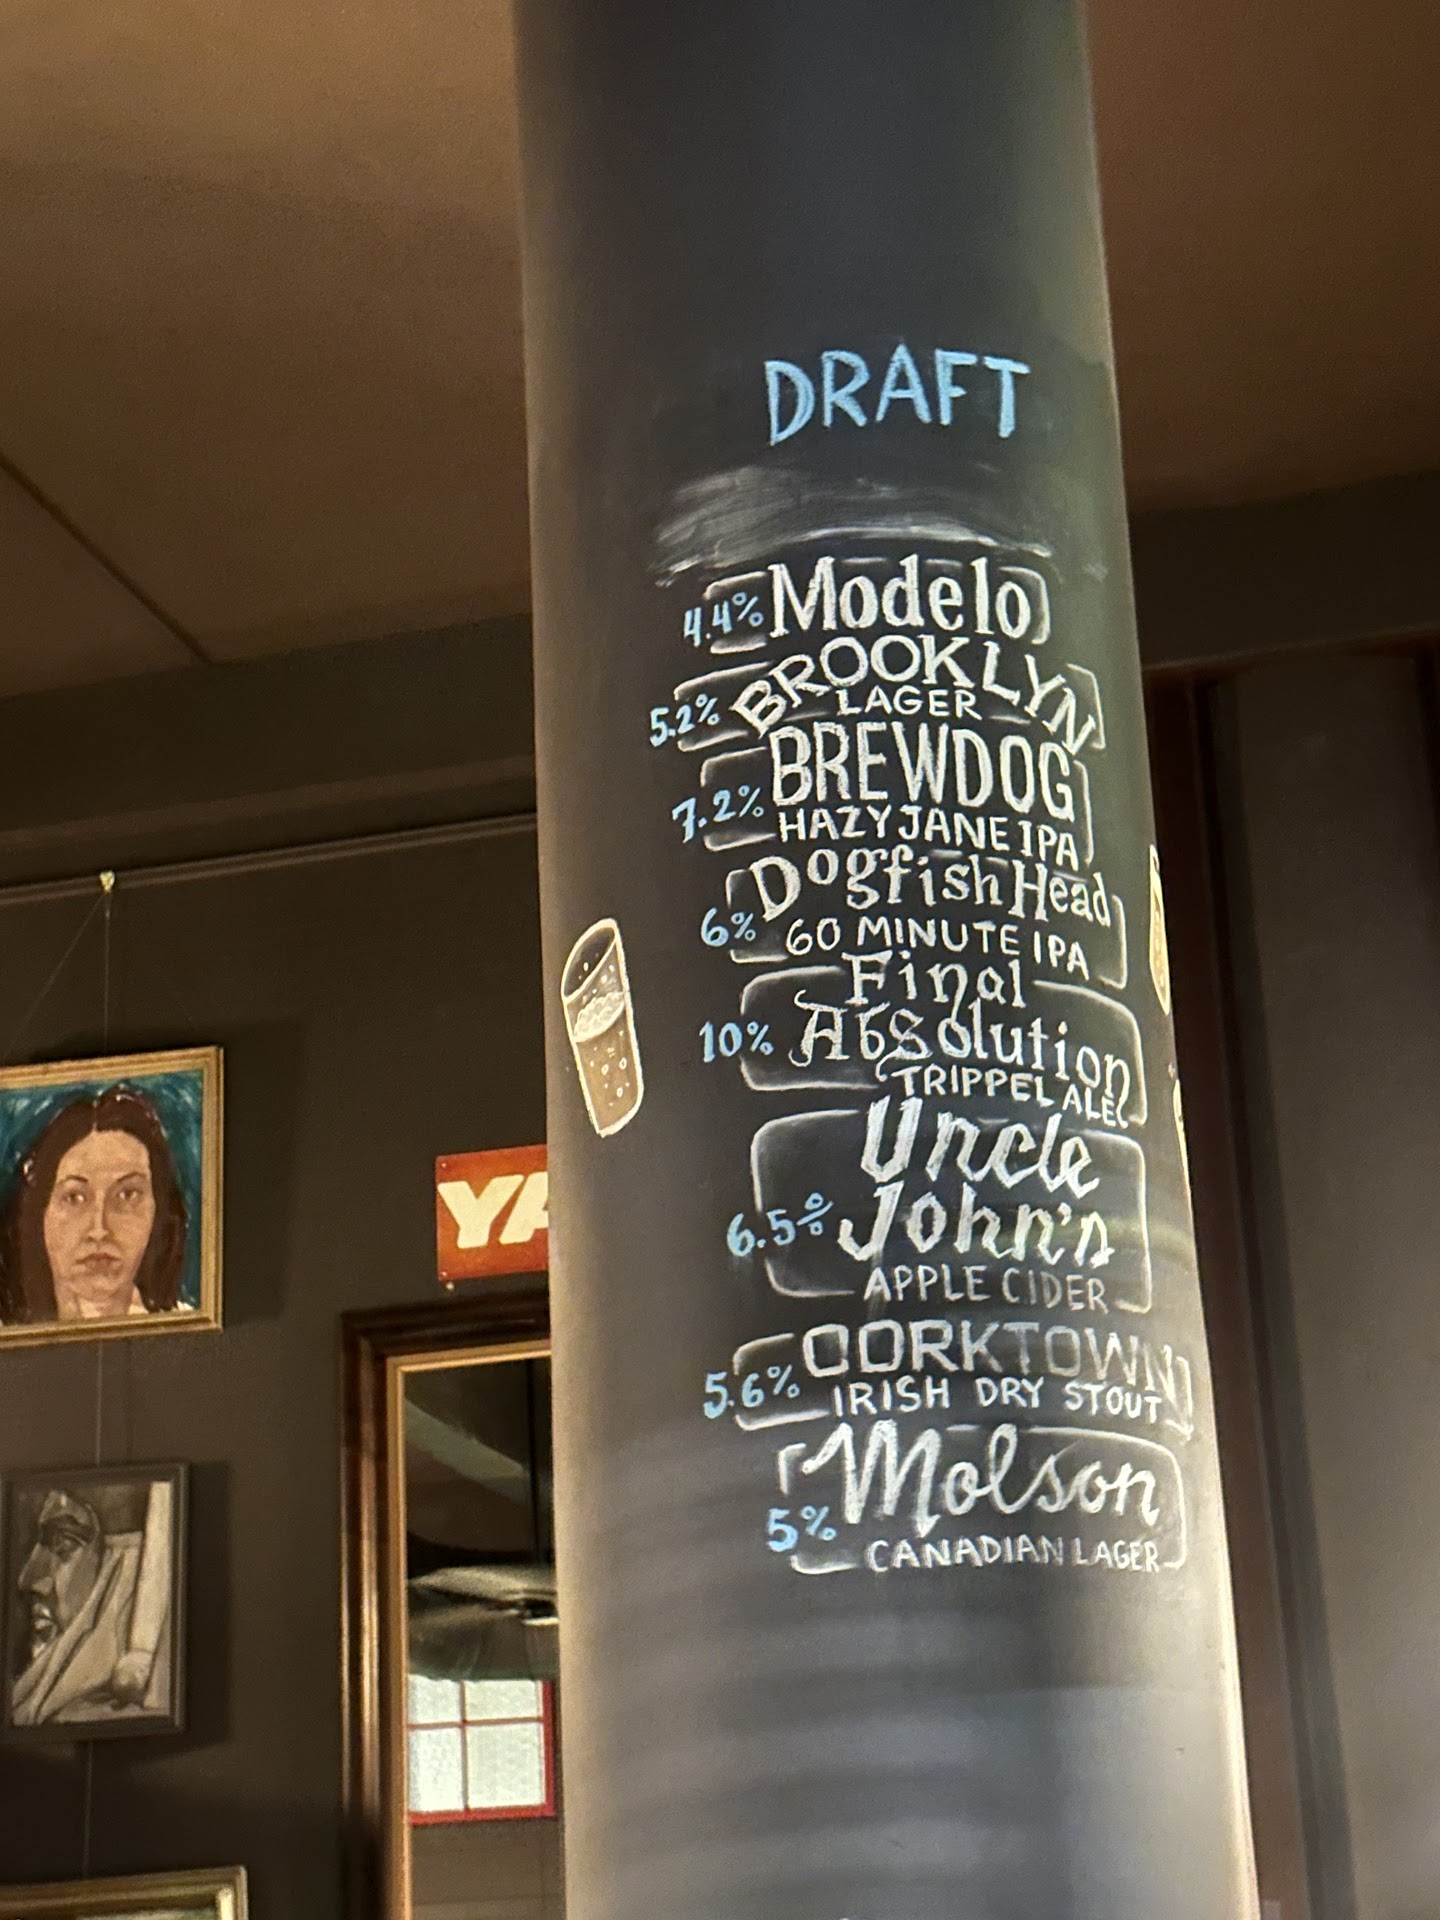 DRAFT
4.4% Modelo
5.2% BROOKLYN
LAGER
7.2% BREWDOG
HAZY JANE IPA
6% Dogfish Head
60 MINUTE IPA
Final
10% Absolution
TRIPPEL ALE
Uncle
6.5% John's
APPLE CIDER
5.6% CORKTOWN
IRISH DRY STOUT
Molson
5% CANADIAN LAGER
YA